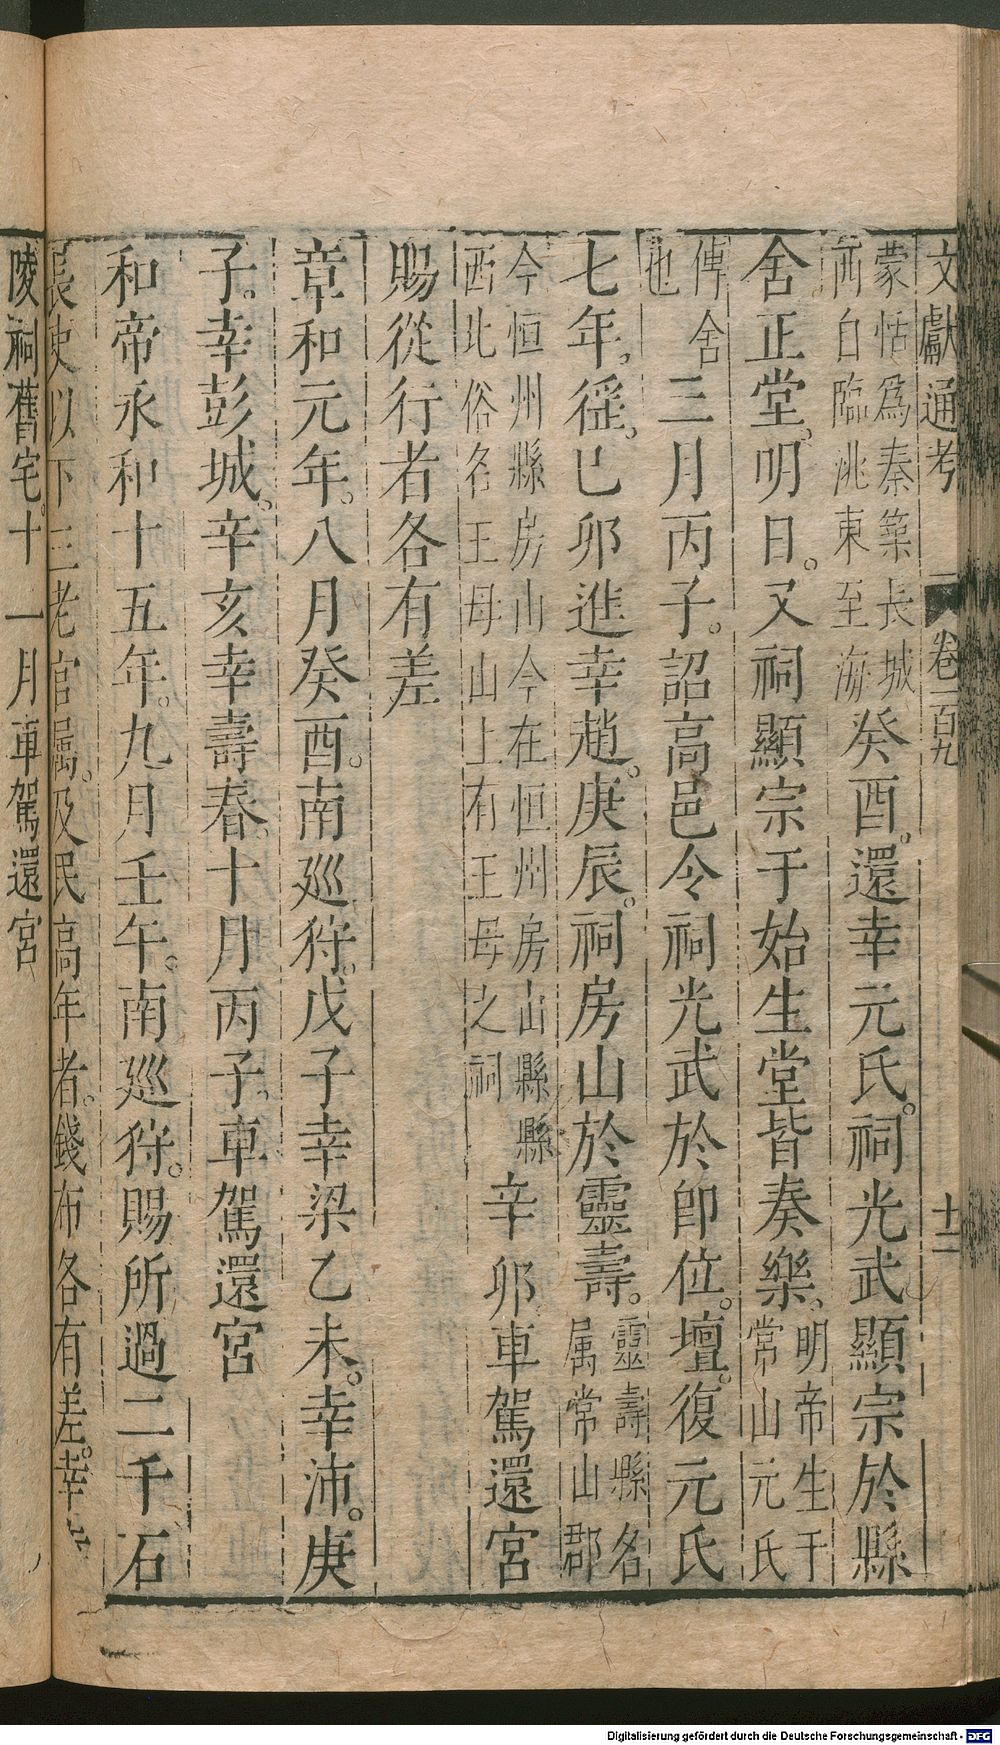 文獻通考 卷一百九 十二
蒙恬爲秦築長城
西自臨洮東至海癸酉。還幸元氏。祠光武顯宗於縣
舍正堂。明日。又祠顯宗于始生堂皆奏樂。明帝生于
常山元氏
傳舍
也三月丙子。詔高邑令祠光武於卽位。壇。復元氏
七年。徭。巳卯進幸趙。庚辰。祠房山於靈壽。靈壽縣名
属常山郡
今恒州縣房山今在恒州房山縣縣
西北俗名王母山上有王母之祠辛卯車駕還宮
賜從行者各有差
章和元年。八月癸酉。南廵狩。戊子幸梁乙未。幸沛。庚
子。幸彭城。辛亥幸壽春。十月丙子。車駕還宮
和帝永和十五年。九月壬午。南廵狩。賜所過二千石
長吏以下三老官属。及民高年者。錢布各有差。幸
陵祠舊宅。十一月車駕還宮
Digitalisierung gefördert durch die Deutsche Forschungsgemeinschaft - DFG